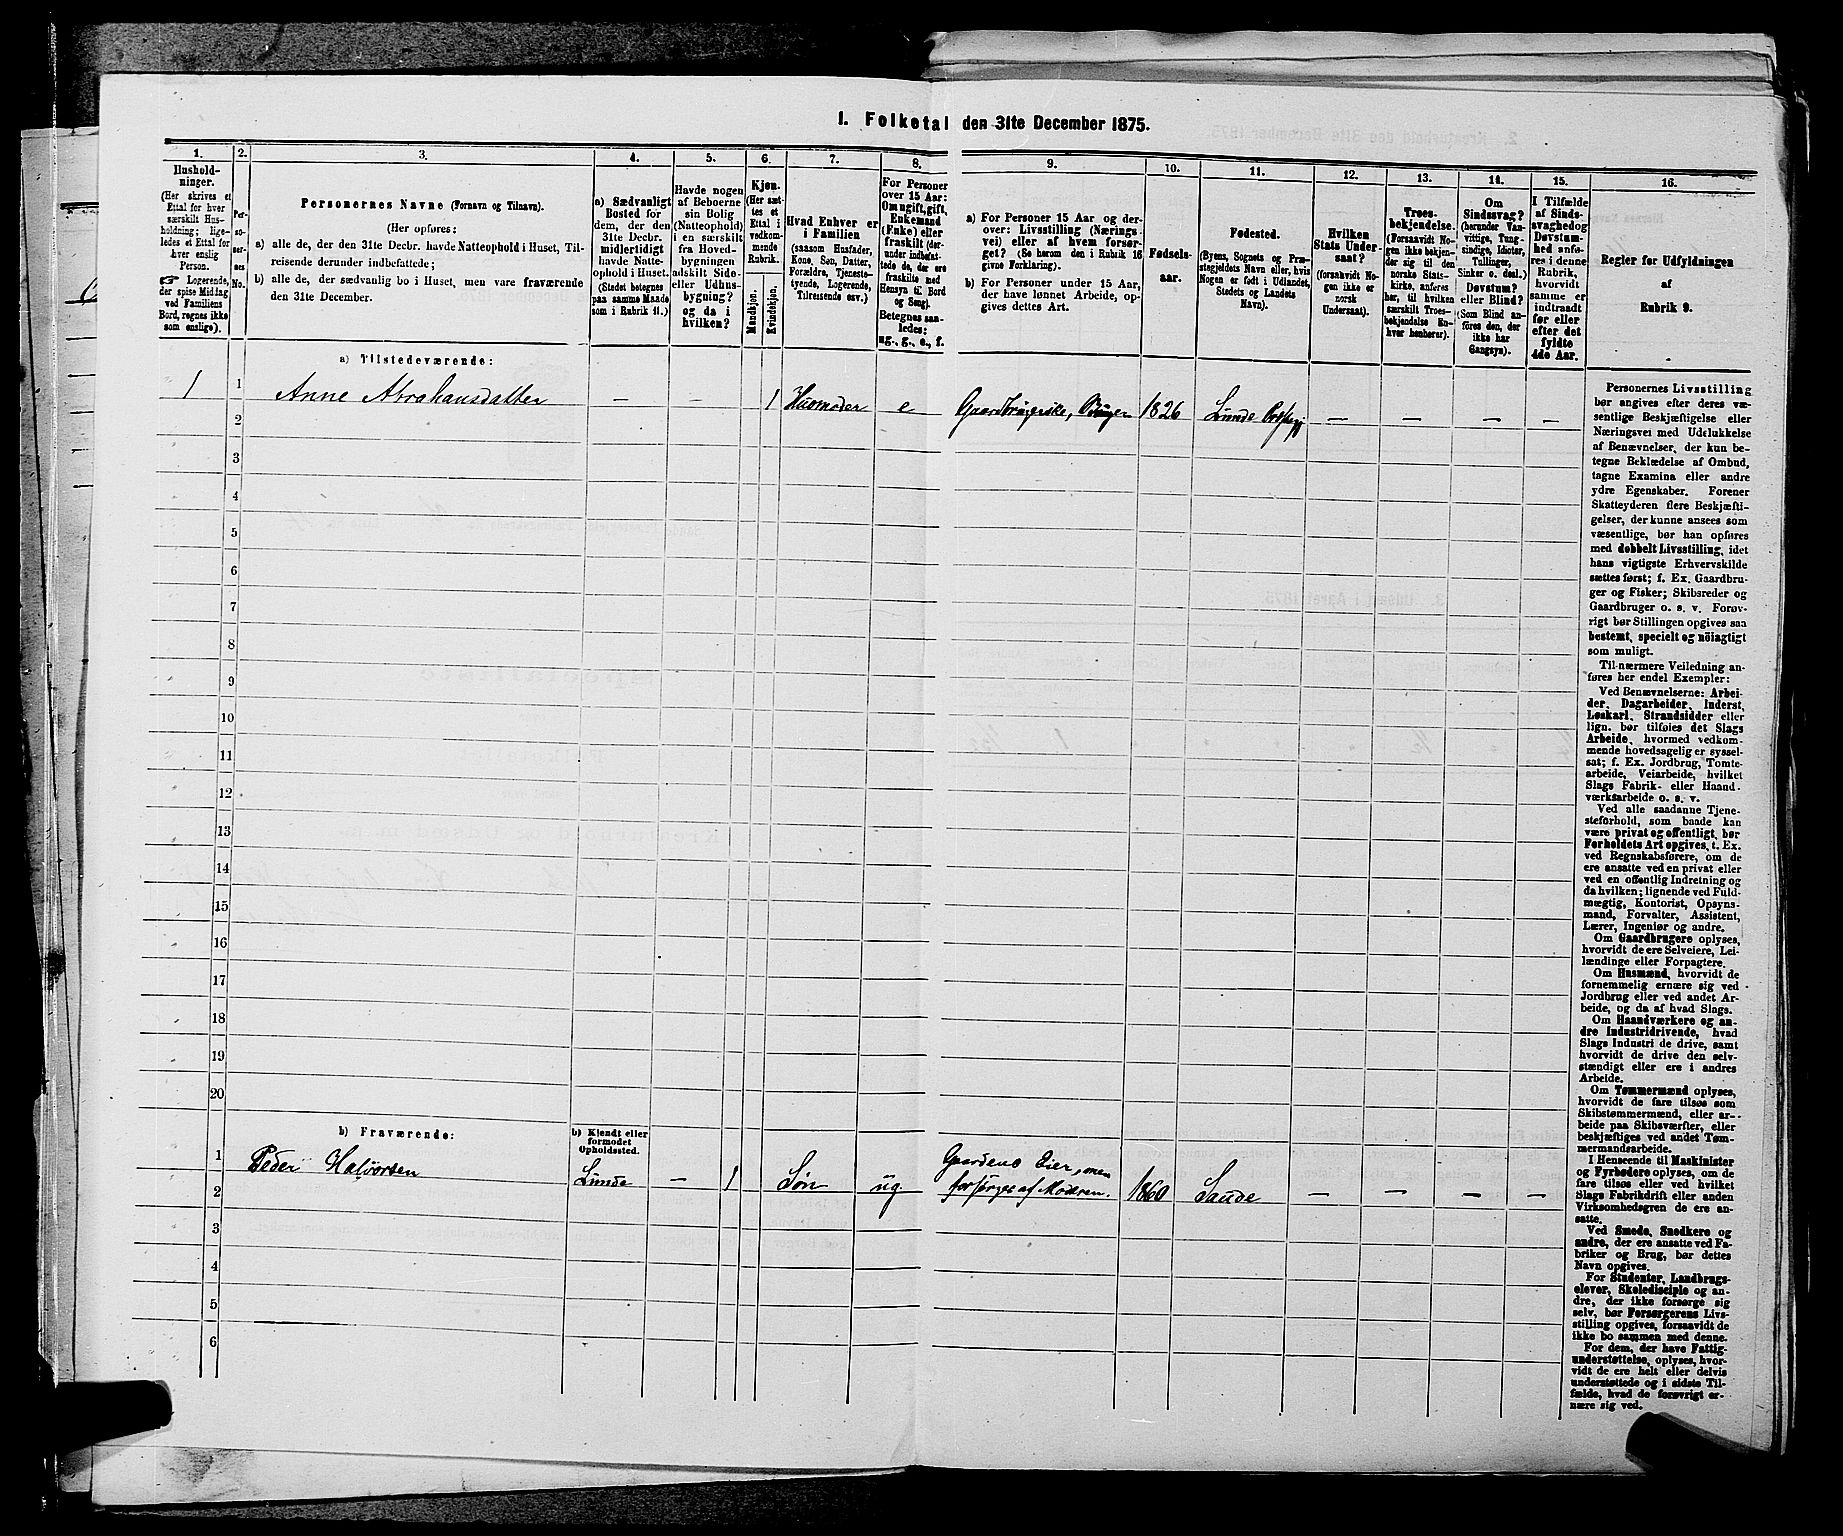 1. Folketal den 31te December 1875.
1.
2.
3.
4.
5.
6.
7.
8.
9.
10.
11.
12.
13.
14.
15.
16.
Hushold-
ninger.
(Her skrives et
Ettal for hver
særskilt Hus-
holdning; lige-
ledes et Ettal for
hver enslig
Person.
☞ Logerende,
der spise Middag
ved Familiens
Bord, regnes ikke
som enslige).
Per-
so-
ner-
nes
No.
Personernes Navne (Fornavn og Tilnavn).
(Her opføres:
a) alle de, der den 31te Decbr. havde Natteophold i Huset, Til-
reisende derunder indbefattede;
b) alle de, der sædvanlig bo i Huset, men vare fraværende
den 31te December.
a) Sædvanligt
Bosted for
dem, der den
31te Decbr.
midlertidigt
havde Natte-
ophold i Huset.
(Stedet betegnes
paa samme Maade
som i Rubrik 11.)
Havde nogen
af Beboerne
sin Bolig
(Natteophold)
i en særskilt
fra Hoved-
bygningen
adskilt Side-
eller Udhus-
bygning?
og da i
hvilken?
Kjøn.
(Her sæt-
tes et
Ettal i
vedkom-
mende
Rubrik.
Mandkjøn.
Kvindekjøn.
Hvad Enhver er
i Familien
(saasom Husfader,
Kone, Søn, Datter,
Forældre, Tjeneste-
tyende, Logerende,
Tilreisende osv.)
For Personer
over 15 Aar:
Om ugift, gift,
Enkemand
(Enke) eller
fraskilt (der-
under indbefat-
tede de, der ere
fraskilte med
Hensyn til Bord
og Seng).
Betegnes saa-
ledes:
ug., g., e., f.
a) For Personer 15 Aar og der-
over: Livsstilling (Nærings-
vei) eller af hvem forsør-
get? (Se herom den i Rubrik 16
givne Forklaring).
b) For Personer under 15 Aar,
der have lønnet Arbeide, op-
gives dettes Art.
Fødsels-
aar.
Fødested.
(Byens, Sognets og Præ-
stegjeldets Navn eller, hvis
Nogen er født i Udlandet,
Stedets og Landets
Navn).
Hvilken
Stats Under-
saat?
(forsaavidt No-
gen ikke er
norsk
Undersaat).
Troes-
bekjendelse.
(Forsaavidt No-
gen ikke bekjen-
der sig til den
norske Stats-
kirke, anføres
her, til hvilken
særskilt Troes-
bekjendelse En-
hver henhører).
Om
Sindssvag?
(herunder Van-
vittige, Tung-
sindige, Idioter,
Tullinger,
Sinker o. desl.)
Døvstum?
eller Blind?
(Som Blind an-
føres den, der
ikke har
Gangsyn).
I Tilfælde
af Sinds-
svaghed og
Døvstum-
hed anfø-
res i denne
Rubrik,
hvorvidt
samme er
indtraadt
før eller
efter det
fyldte
4de Aar.
Regler for Udfyldningen
af
Rubrik 9.
a) Tilstedeværende:
1 1 Anne Abrahamsdatter — — 1 Husmoder e Gaardbrugerske, 1826 Lunde — — — —
2
3
4
5
6
7
8
9
10
11
12
13
14
15
16
17
18
19
20
b) Fraværende:
b) Kjendt eller
formodet
Opholdssted.
1 Peder Halvorsen Lunde — 1 Søn ug Gaardens Eier, men
forsørges af Moderen. 1860 Saude — — — —
2
3
4
5
6
Personernes Livsstilling
bør angives efter deres væ-
sentlige Beskjæftigelse eller
Næringsvei med Udelukkelse
af Benævnelser, der kun be-
tegne Beklædelse af Ombud,
tagne Examina eller andre
ydre Egenskaber. Forener
Skatteyderen flere Beskjæfti-
gelser, der kunne ansees som
væsentlige, bør han opføres
med dobbelt Livsstilling, idet
hans vigtigste Erhvervskilde
sættes først; f. Ex. Gaardbru-
ger og Fisker; Skibsreder og
Gaardbruger o. s. v. Forøv-
rigt bør Stillingen opgives saa
bestemt, specielt og nöiagtigt
som muligt.
Til nærmere Veiledning an-
føres her endel Exempler:
Ved Benævnelserne: Arbei-
der, Dagarbeider, Inderst,
Løskarl, Strandsidder eller
lign. bør tilføies det Slags
Arbeide, hvormed vedkom-
mende hovedsagelig er syssel-
sat; f. Ex. Jordbrug, Tomte-
arbeide, Veiarbeide, hvilket
Slags Fabrik- eller Haand-
værksarbeide o. s. v.
Ved alle saadanne Tjene-
steforhold, som baade kan
være privat og offentligt, bør
Forholdets Art opgives, t. Ex.
ved Regnskabsførere, om de
ere ansatte ved en privat eller
ved en offentlig Indretning og
da hvilken; lignende ved Fuld-
mægtig, Kontorist, Opsyns-
mand, Forvalter, Assistent,
Lærer, Ingeniør og andre.
Om Gaardbrugere oplyses,
hvorvidt de ere Selveiere, Lei-
lændinge eller Forpagtere.
Om Husmænd, hvorvidt de
fornemmelig ernære sig ved
Jordbrug eller ved andet Ar-
beide, og da af hvad Slags.
Om Haandværkere og an-
dre Industridrivende, hvad
Slags Industri de drive, samt
hvorvidt de drive den selv-
stændigt eller ere i andres
Arbeide.
Om Tømmermænd oplyses,
hvorvidt de fare tilsøs som
Skibstømmermænd, eller ar-
beide paa Skibsværfter, eller
beskjæftiges ved andet Tøm-
mermandsarbeide.
I Henseende til Maskinister
og Fyrbødere oplyses, om de
fare tilsøs eller ved hvilket
Slags Fabrikdrift eller anden
Virksomhedsgren de ere an-
satte.
Ved Smede, Snedkere og
andre, der ere ansatte ved Fa-
briker og Brug, bør dettes
Navn opgives.
For Studenter, Landbrugs-
elever, Skoledisciple og an-
dre, der ikke forsørge sig
selv, bør Forsørgerens Livs-
stilling opgives, forsaavidt de
ikke bo sammen med denne.
For dem, der have Fattig-
understøttelse, oplyses, hvor-
vidt de ere helt eller delvis
understøttede og i sidste Til-
fælde, hvad de forøvrigt er-
nære sig ved.